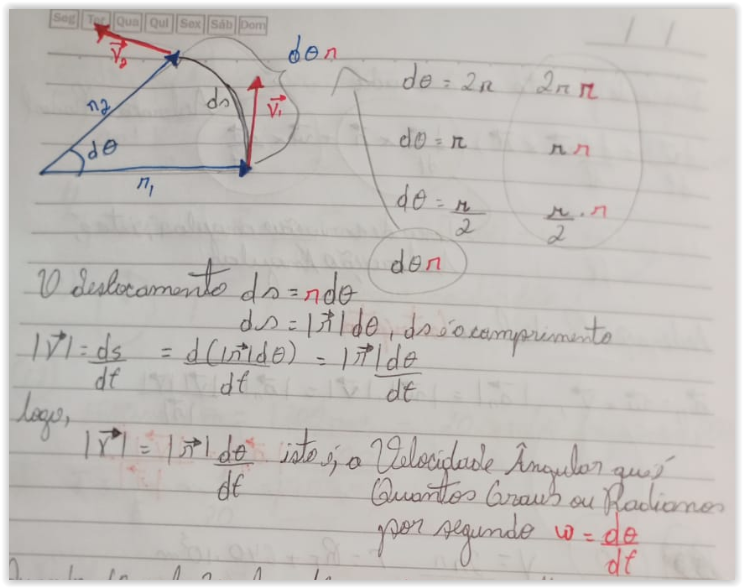 Seg Ter Qua Qui Sex Sáb Dom
dθr
V⃗₂
r₂
ds
V⃗₁
dθ
r₁
dθ = 2π 2π r
dθ = π π r
dθ = π/2 π/2 . r
dθ r
O deslocamento ds = r dθ
ds = |r⃗| dθ, ds é o comprimento
|V⃗| = ds/dt = d(|r⃗|dθ)/dt = |r⃗| dθ/dt
logo,
|V⃗| = |r⃗| dθ/dt isto é, a Velocidade Ângular que é
Quantos Graus ou Radianos
por segundo w = dθ/dt